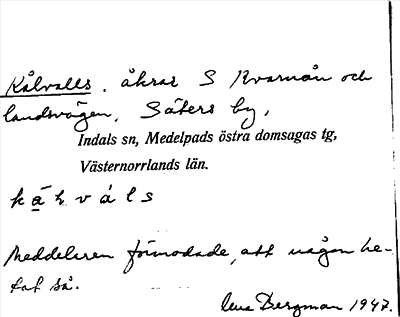 Kålvalls, åkrar S Kvarnån och
landsvägen, Säters by,
Indals sn, Medelpads östra domsagas tg,
Västernorrlands län.
k a̱ l v á l s
Meddelaren förmodade, att någon he-
tat så.
Lena Bergman 1947.